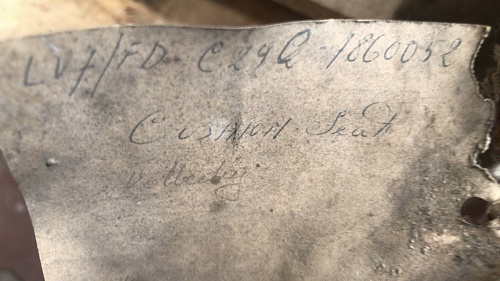 LV7/FD C29Q 1860052
Cushion Seat